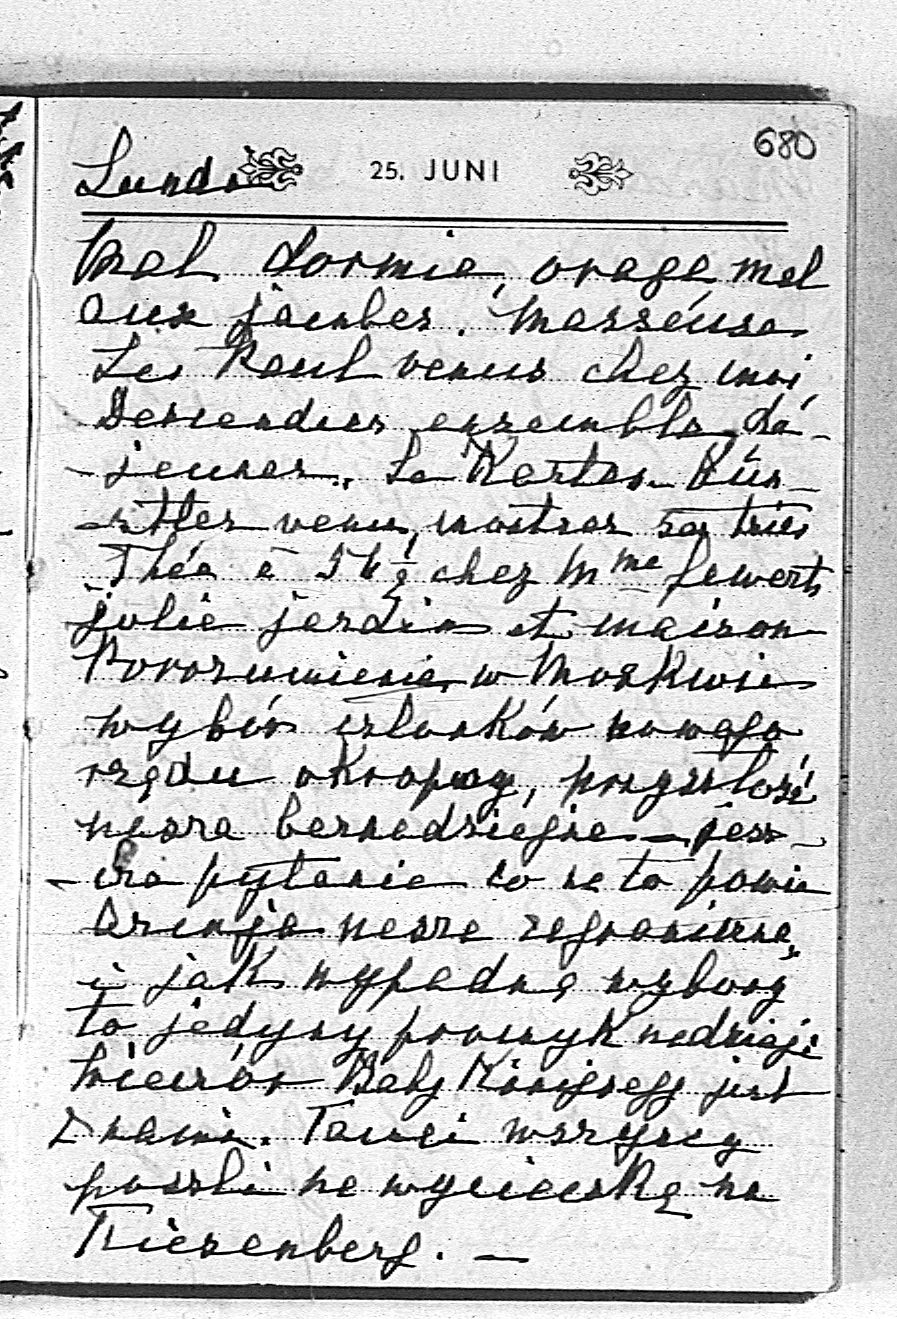 680
Lundi 25. JUNI
Mal dormie, orage, mal
aux jambes. Masseuse
Les Raul venus chez moi
Descendus ensemble dé-
jeuner. Le Karten-Kün-
stler venu, montrer sa
Thée à 5 h ½ chez Mme
jolie jardin et maison
Porozumienie w Moskwie
wybór członków nowego
rządu okropny, przyszłość
nasza beznadziejna – jesz-
cze pytanie co na to powie
Dzienja nasza zagraniczna,
i jak wypadną wybory
to jedyny promyk nadzieji
Wieczór Baby Königsegg jest
z nami. Tamci wszyscy
poszli na wycieczkę na
Riesenberg. —